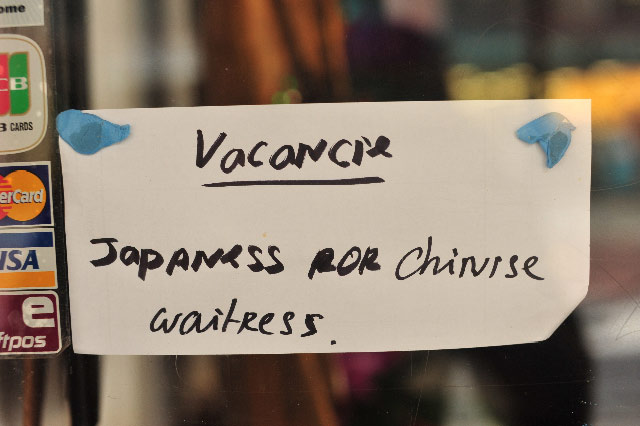 ome
CB
B CARDS
erCard
VISA
e
ftpos
Vacancie
Japaness ROR Chinise
waitress.